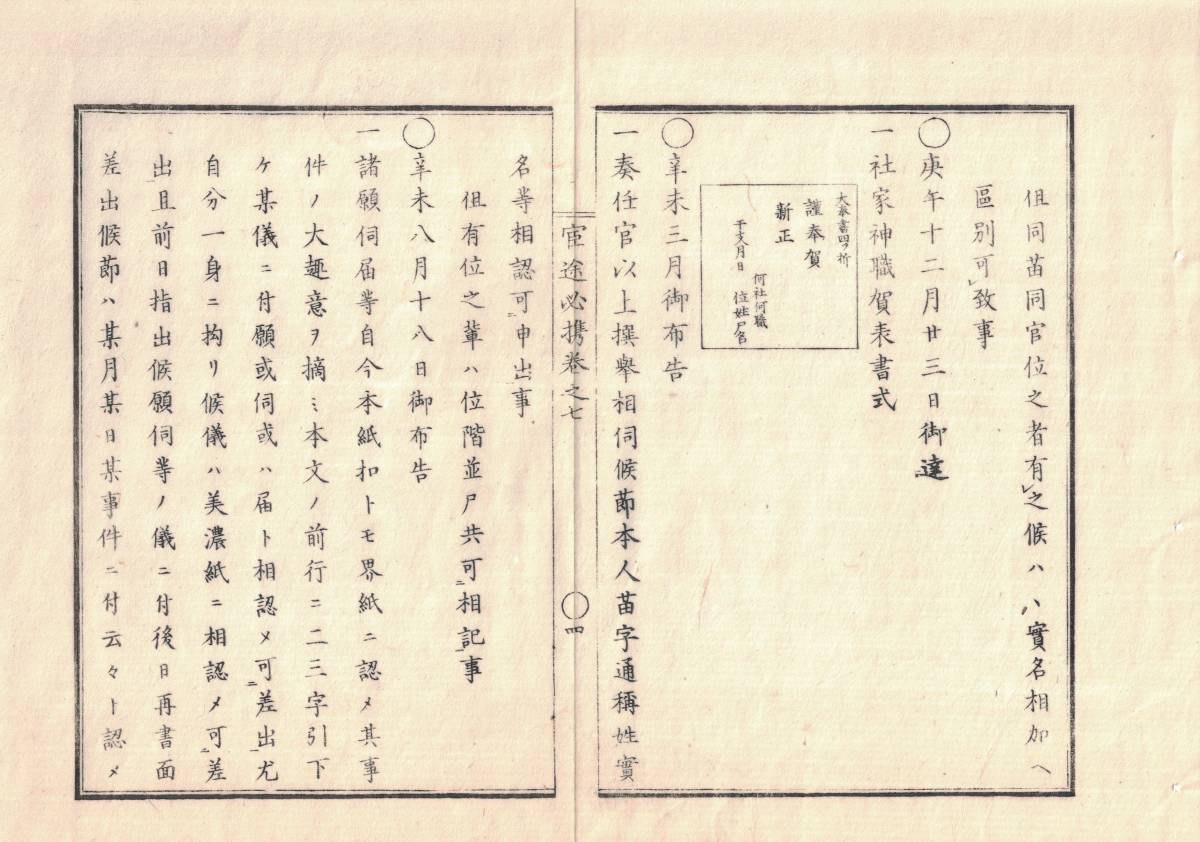 伹同苗同官位之者有レ之候ハヽ實名相加ヘ
區別可レ致事
◯庚午十二月廿三日御達
一社家神職賀表書式
大奉書四ツ折
謹奉賀
新正
干支月日
何社何職
位姓尸名
◯辛未三月御布告
一奏任官以上撰舉相伺候節本人苗字通稱姓實
宦途必携巻之七
◯四
名等相認可二申出一事
伹有位之輩ハ位階並尸共可二相記一事
◯辛未八月十八日御布告
一諸願伺届等自今本紙扣トモ界紙ニ認メ其事
件ノ大趣意ヲ摘ミ本文ノ前行ニ二三字引下
ケ某儀ニ付願或伺或ハ届ト相認メ可二差出一尤
自分一身ニ拘リ候儀ハ美濃紙ニ相認メ可二差
出一且前日指出候願伺等ノ儀ニ付後日再書面
差出候節ハ某月某日某事件ニ付云々ト認メ